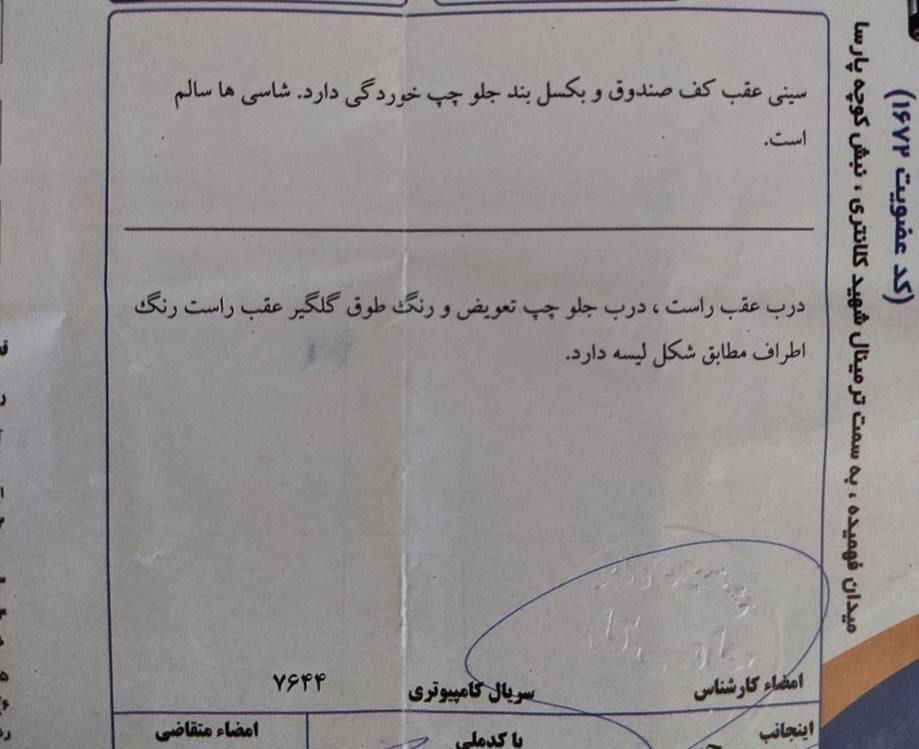 سینی عقب کف صندوق و بکسل بند جلو چپ خوردگی دارد. شاسی ها سالم
است.
درب عقب راست ، درب جلو چپ تعویض و رنگ طوق گلگیر عقب راست رنگ
اطراف مطابق شکل لیسه دارد.
امضاء کارشناس
سریال کامپیوتری
۷۶۴۴
اینجانب
با کدملی
امضاء متقاضی
(کد عضویت ۱۶۷۲)
میدان فهمیده ، به سمت ترمینال شهید کلانتری ، نبش کوچه پارسا